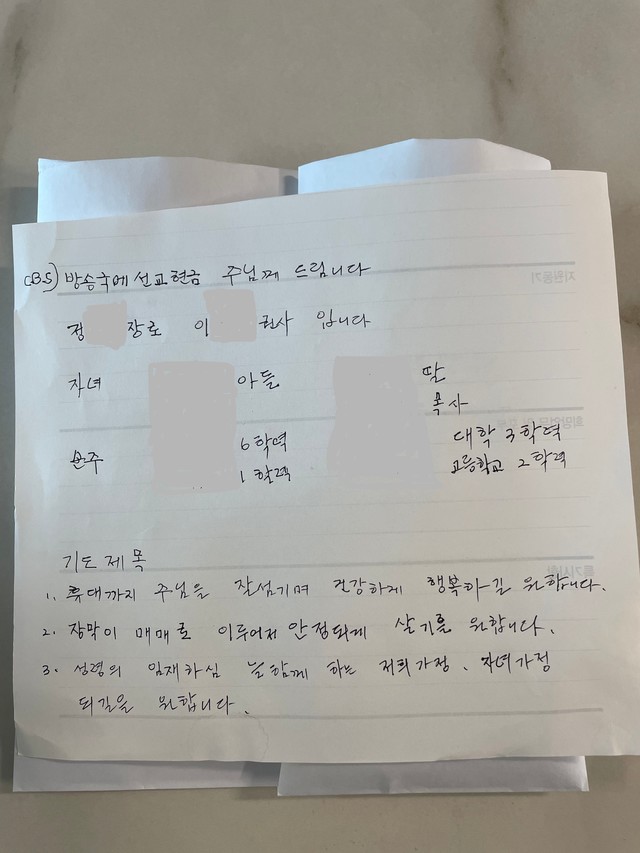 C.B.S) 방송국에 선교헌금 주님께 드립니다
정 장로 이 권사 입니다
자녀 아들 딸
목사
손주 6학력 대학 3학력
1학력 고등학교 2학력
기도 제목
1. 휴대까지 주님을 잘섬기며 건강하게 행복하길 원합니다.
2. 장막이 매매로 이루어져 안정되게 살기를 원합니다.
3. 성령의 임재하심 늘함께 하는 저희가정. 자녀가정
되길을 원합니다.
지원동기
특기사항